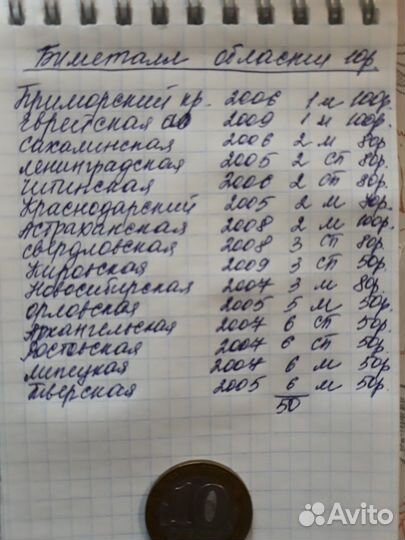 Биметалл области 10р.
Приморский кр. 2006 1 м 100р.
Еврейская ао 2009 1 м 100р.
Сахалинская 2006 2 м 80р.
Ленинградская 2005 2 СП 80р.
Читинская 2006 2 СП 80р.
Краснодарский 2005 2 м 80р.
Астраханская 2008 2 м 100р.
Свердловская 2008 3 СП 80р.
Кировская 2009 3 СП 50р.
Новосибирская 2007 3 м 80р.
Орловская 2005 5 м 50р.
Архангельская 2007 6 СП 50р.
Ростовская 2007 6 СП 50р.
Липецкая 2007 6 м 50р.
Тверская 2005 6 м 50р.
50
10
Avito